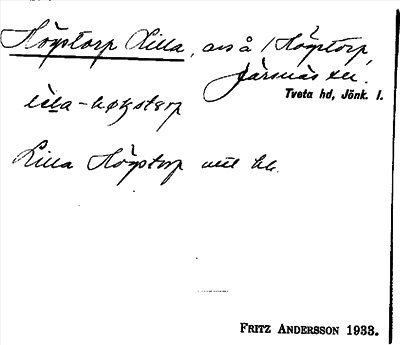 Högstorp Lilla, avs å /Högstorp,
Järsnäs sn.
Tveta hd, Jönk. l.
lila-høkstorp
Lilla Högstorp
FRITZ ANDERSSON 1933.